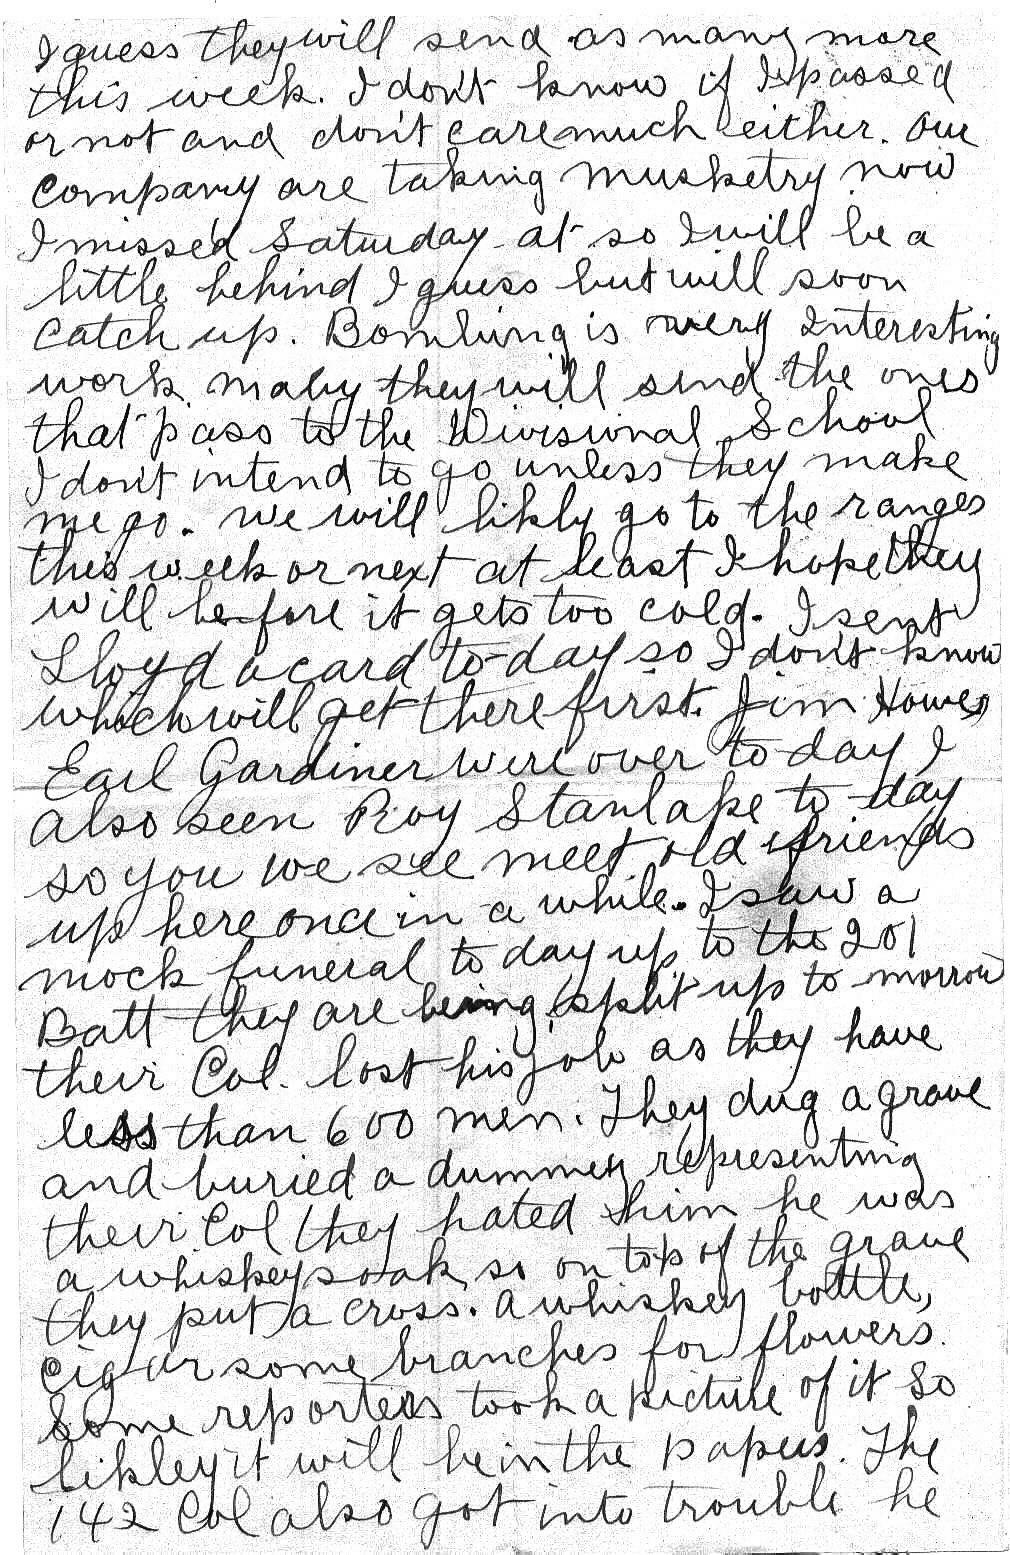 I guess they will send as many more
this week. I don't know if I passed
or not and don't care much either. Our
Company are taking musketry now
I missed Saturday at so I will be a
little behind I guess but will soon
catch up. Bombing is very Interesting
work maby they will send the ones
that pass to the Divisional School
I don't intend to go unless they make
me go. We will likly go to the ranges
this week or next at least I hope they
will before it gets too cold. I sent
Lloyd a card to-day so I don't know
which will get there first. Jim Howes
Earl Gardiner were over to day I
also seen Roy Stanlake to-day
so you we see meet old friends
up here once in a while. I saw a
mock funeral to day up to the 201
Batt they are being split up to morrow
their Col. lost his job as they have
less than 600 men. They dug a grave
and buried a dummey representing
their Col they hated him he was
a whiskey soak so on top of the grave
they put a cross. a whiskey bottle,
cigar some branches for flowers.
Some reporters took a picture of it so
likley it will be in the papers. The
142 Col also got into trouble he